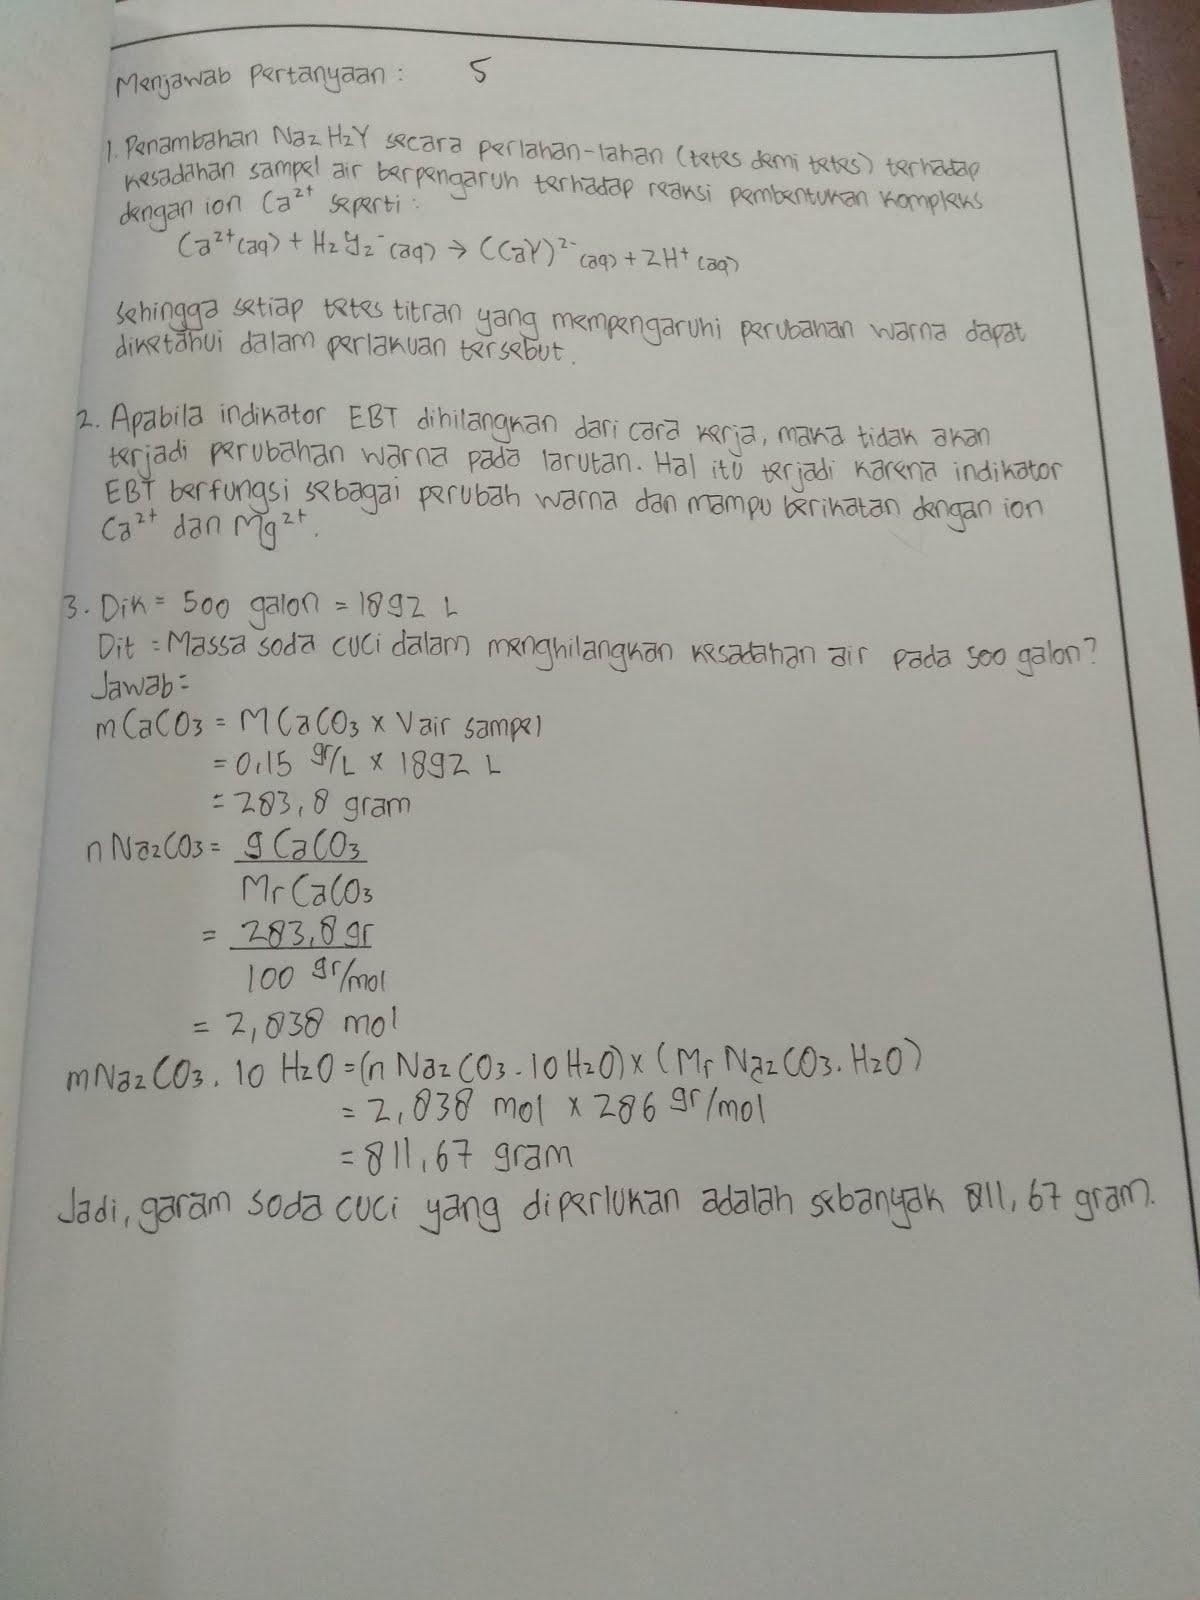 Menjawab Pertanyaan : 5
1. Penambahan Na₂H₂Y secara perlahan-lahan (tetes demi tetes) terhadap
kesadahan sampel air berpengaruh terhadap reaksi pembentukan kompleks
dengan ion Ca²⁺ seperti :
Ca²⁺(aq) + H₂Y₂⁻(aq) → ((aY)²⁻(aq) + 2H⁺(aq)
sehingga setiap tetes titran yang mempengaruhi perubahan warna dapat
diketahui dalam perlakuan tersebut.
2. Apabila indikator EBT dihilangkan dari cara kerja, maka tidak akan
terjadi perubahan warna pada larutan. Hal itu terjadi karena indikator
EBT berfungsi sebagai perubah warna dan mampu berikatan dengan ion
Ca²⁺ dan Mg²⁺.
3. Dik = 500 galon = 1892 L
Dit = Massa soda cuci dalam menghilangkan kesadahan air pada 500 galon?
Jawab =
mCaCO₃ = MCaCO₃ x Vair sampel
= 0,15 gr/L x 1892 L
= 283,8 gram
nNa₂CO₃ = gCaCO₃
MrCaCO₃
= 283,8 gr
100 gr/mol
= 2,838 mol
mNa₂CO₃.10 H₂O = (n Na₂CO₃.10H₂O) x (Mr Na₂CO₃.H₂O)
= 2,838 mol x 286 gr/mol
= 811,67 gram
Jadi, garam soda cuci yang diperlukan adalah sebanyak 811,67 gram.